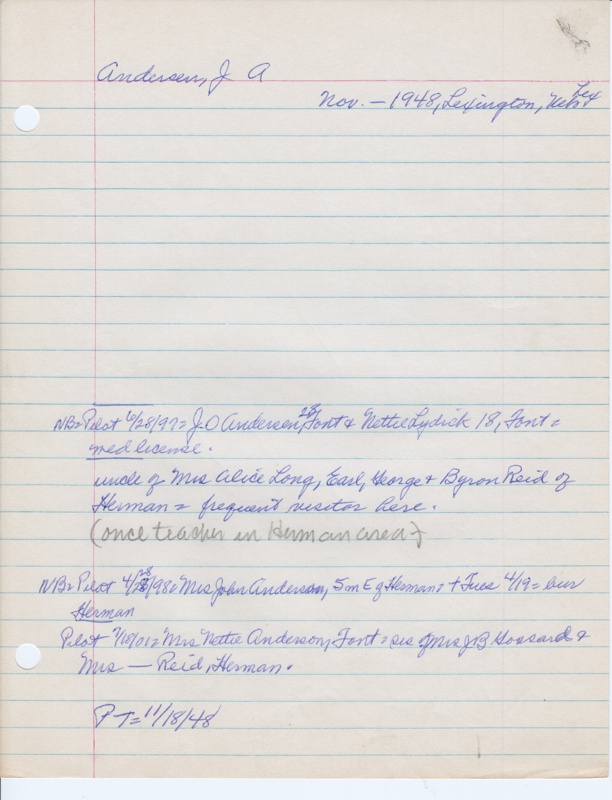 Andersen, J A
Nov. - 1948, Lexington, Neb
Lex
NB= Pilot 6/28/97= J.O Andersen, 28, Font & Nettie Lydick 18, Font =
wed license.
uncle of Mrs Alice Long, Earl, George & Byron Reid of
Herman = frequent visitor here.
(once teacher in Herman area)
NB= Pilot 4/28/98= Mrs John Anderson, 5m E of Herman= + Tues 4/19= bur
Herman
Pilot 7/18/01= Mrs Nettie Anderson, Font= sis of Mrs JB Gossard &
Mrs — Reid, Herman.
PT= 11/18/48